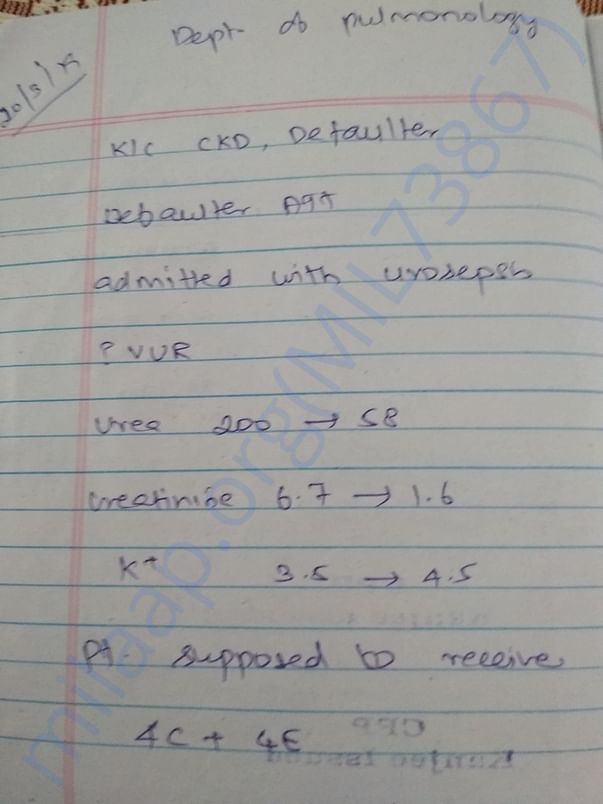 Dept of pulmonology
K/C CKD, Defaulter
Defaulter ATT
admitted with urosepsis
? VUR
Urea 200 → 58
Creatinine 6.7 → 1.6
K+ 3.5 → 4.5
Pt. supposed to receive
4C + 4E
milaap.org(MIL73867)